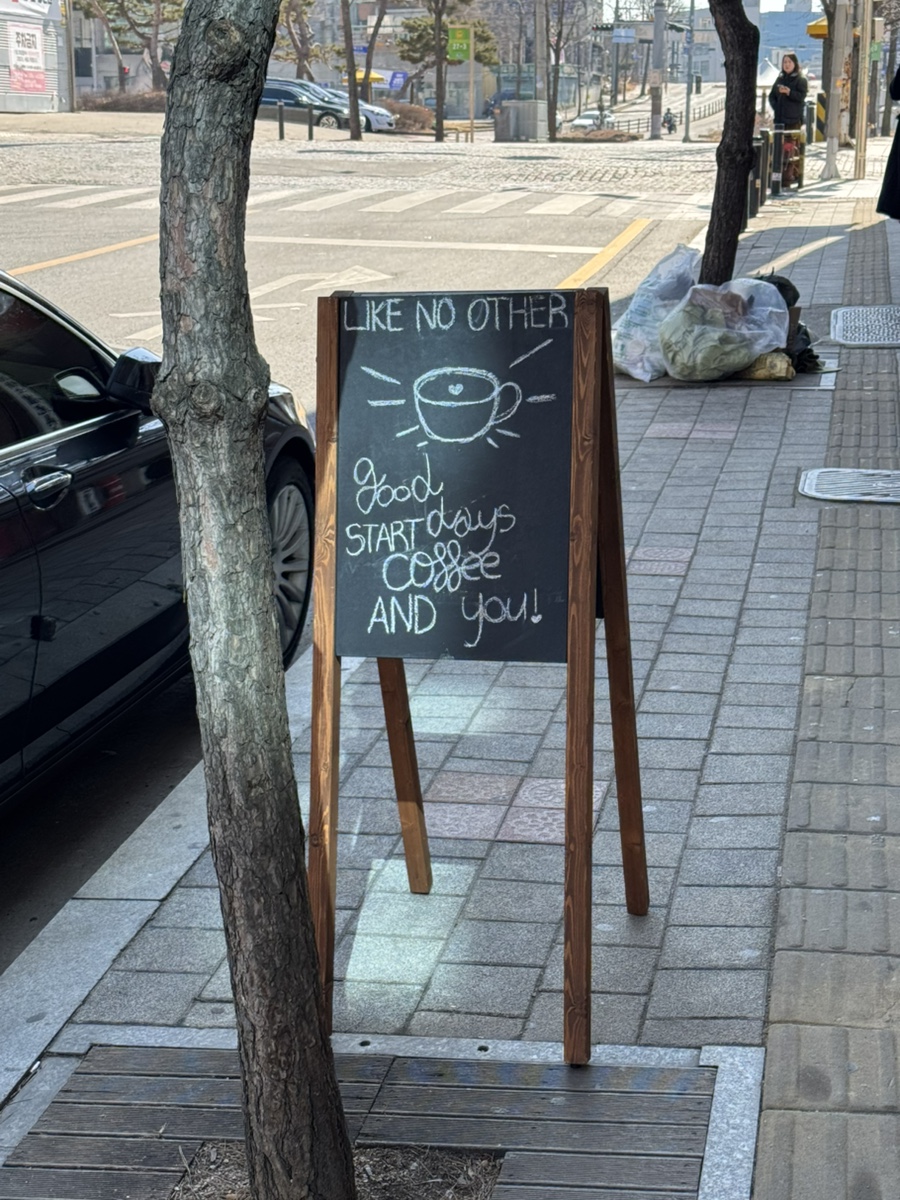 LIKE NO OTHER
good
START days
coffee
AND you!